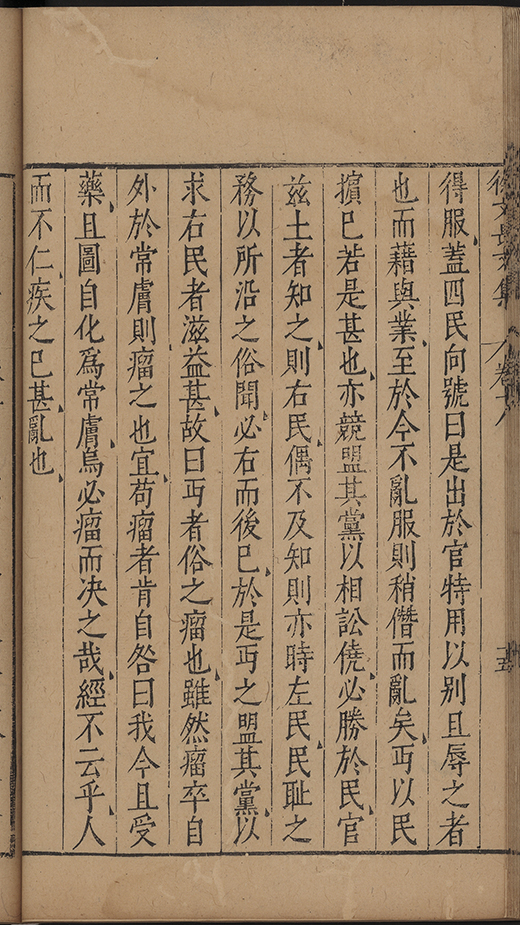 得服蓋四民向號曰是出於官特用以别且辱之者
也而藉與業至於今不亂服則稍僭而亂矣丐以民
擯已若是甚也亦競盟其黨以相訟僥必勝於民官
兹土者知之則右民偶不及知則亦時左民民耻之
務以所沿之俗聞必右而後已於是丐之盟其黨以
求右民者滋益甚故曰丐者俗之瘤也雖然瘤卒自
外於常膚則瘤之也宜苟瘤者肯自咎曰我今且受
藥且圖自化爲常膚烏必瘤而决之哉經不云乎人
而不仁疾之已甚亂也